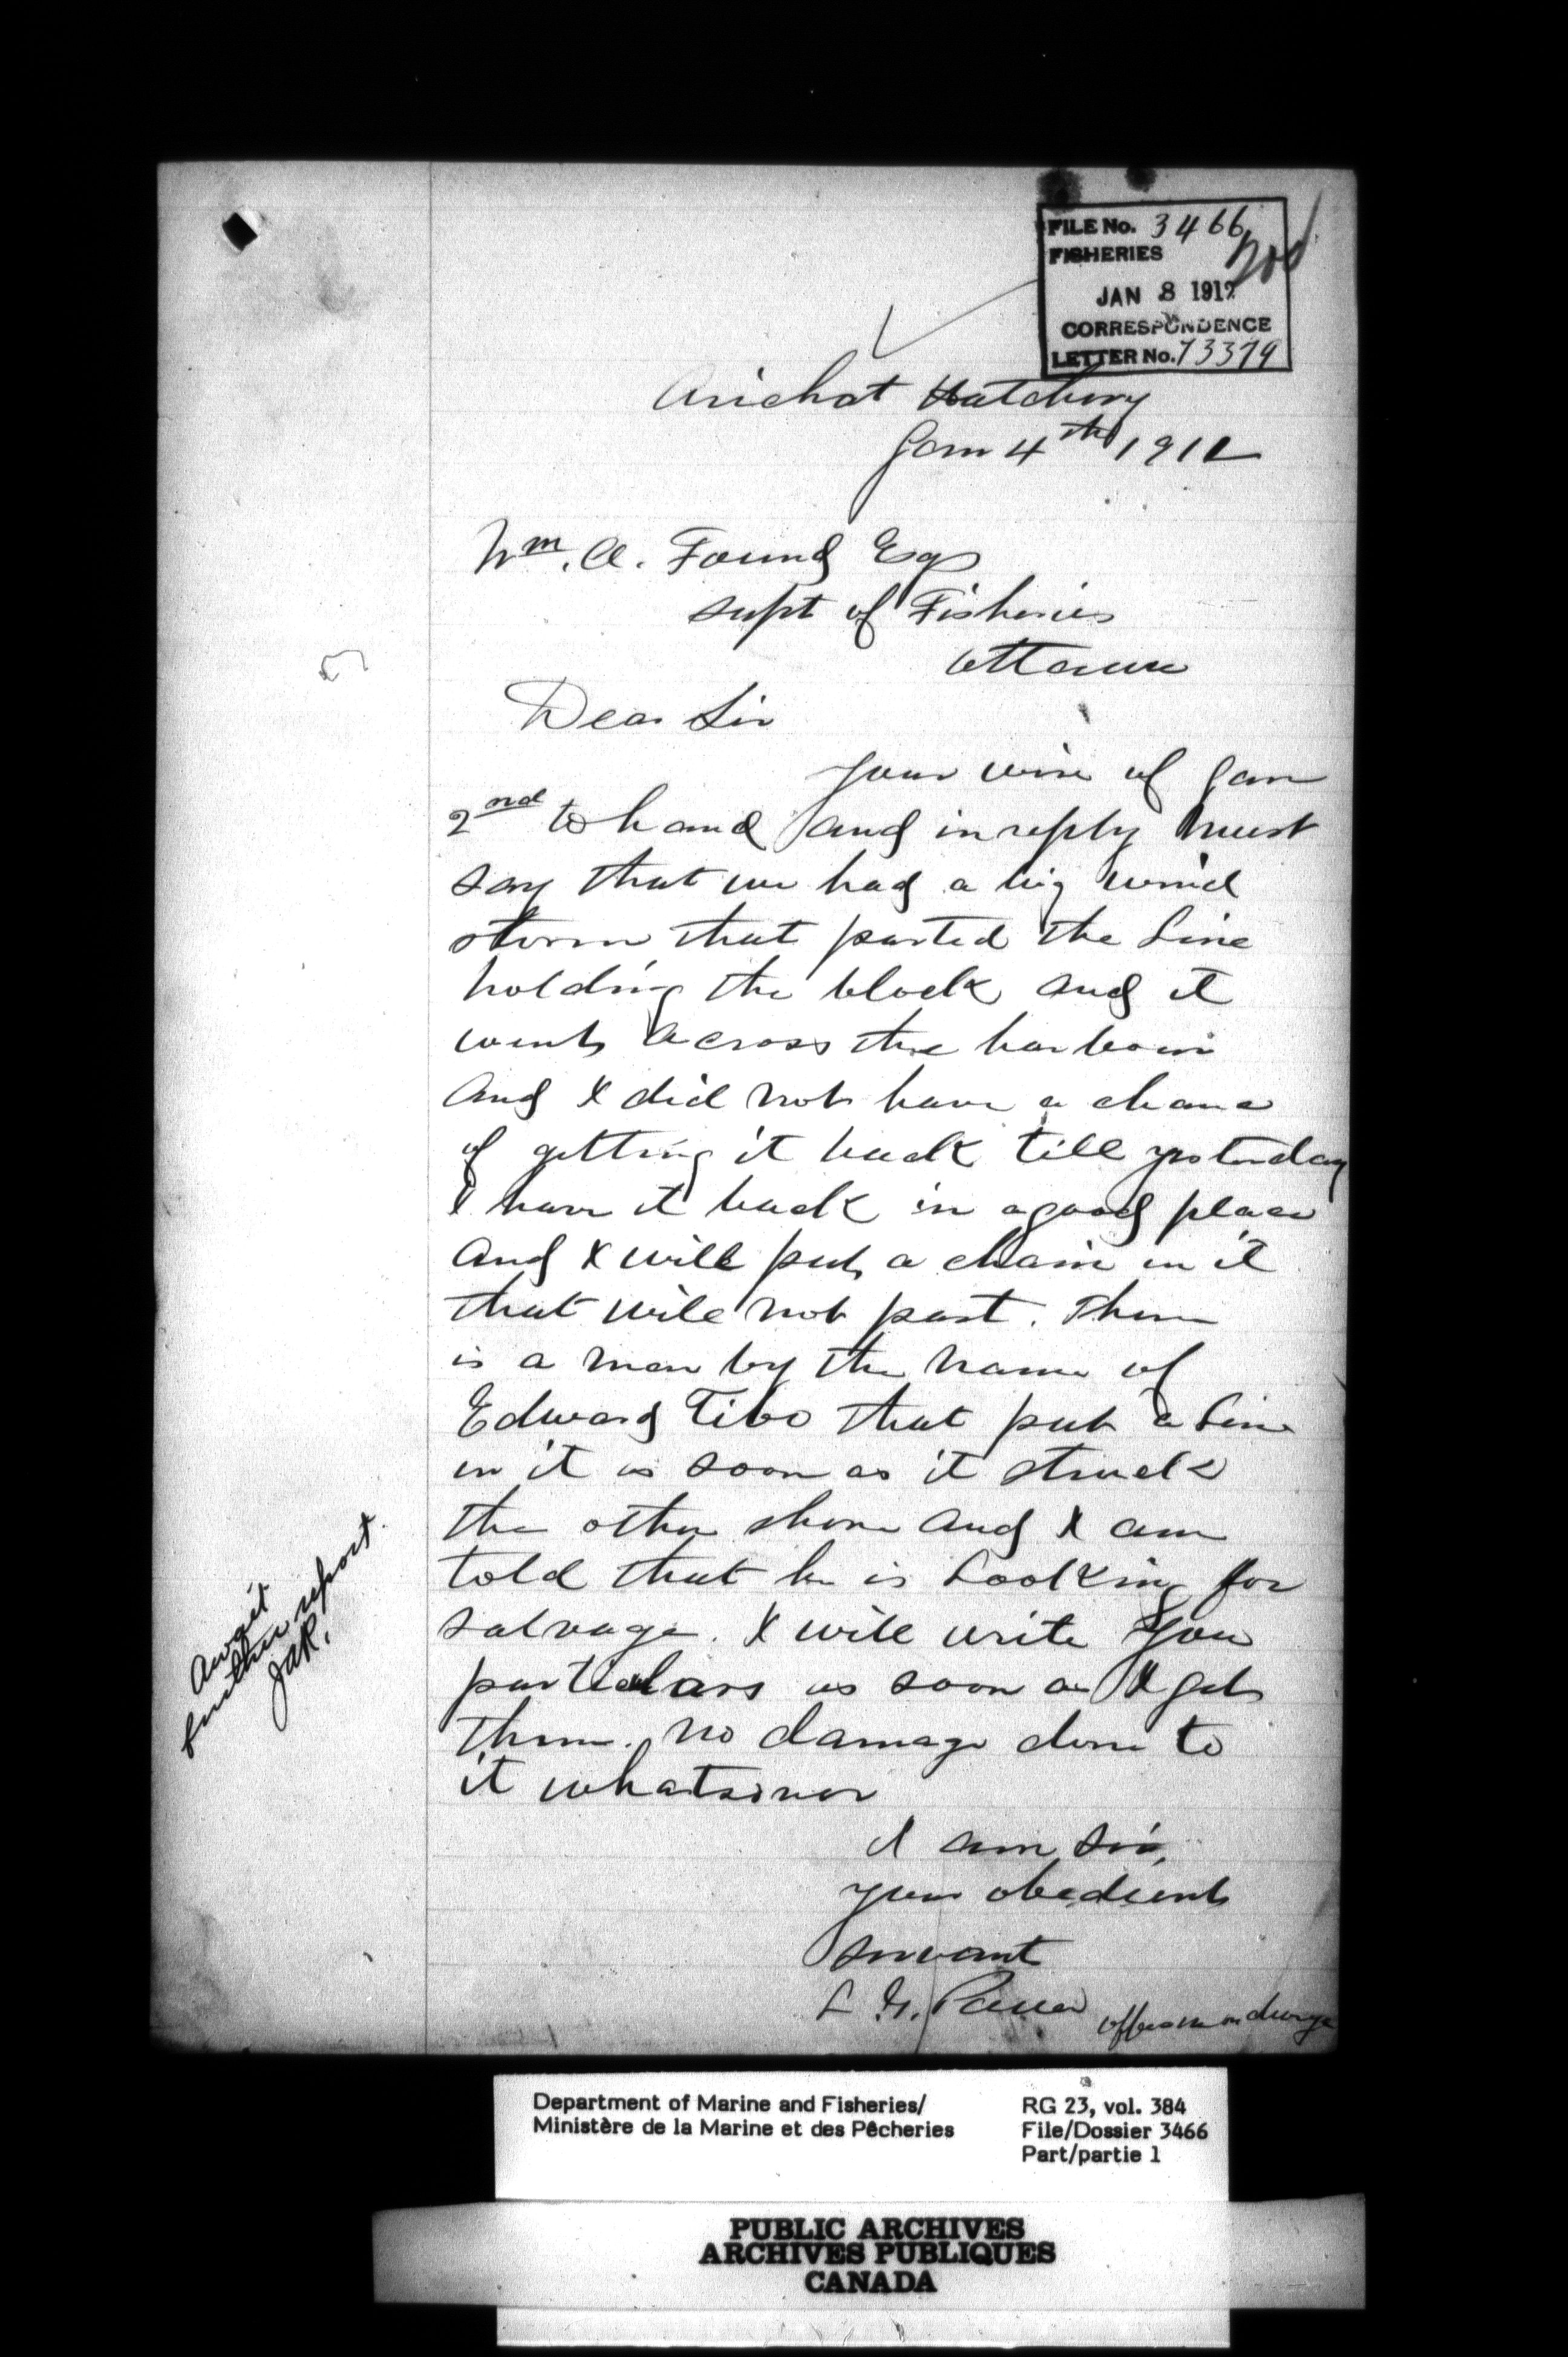 FILE No. 3466
FISHERIES
JAN 8 1912
CORRESPONDENCE
LETTER No. 73379
Arichat Hatchery
Jan 4th 1912
Wm. A. Found Esq
supt of Fisheries
Ottawa
Dear Sir
your wire of Jan
2nd to hand and in reply must
say that we had a big wind
storm that parted the Line
holding the block and it
went across the harbour
and I did not have a chance
of getting it back till yesterday
I have it back in a good place
and I will put a chain in it
that will not part. There
is a man by the name of
Edward Tibo that put a Line
in it as soon as it struck
the other shore and I am
told that he is Looking for
salvage. I will write you
particulars as soon as I get
them. no damage done to
it whatsoever
I am sir,
your obedient
servant
Await
further report
Department of Marine and Fisheries/
Ministère de la Marine et des Pêcheries
RG 23, vol. 384
File/Dossier 3466
Part/partie 1
PUBLIC ARCHIVES
ARCHIVES PUBLIQUES
CANADA